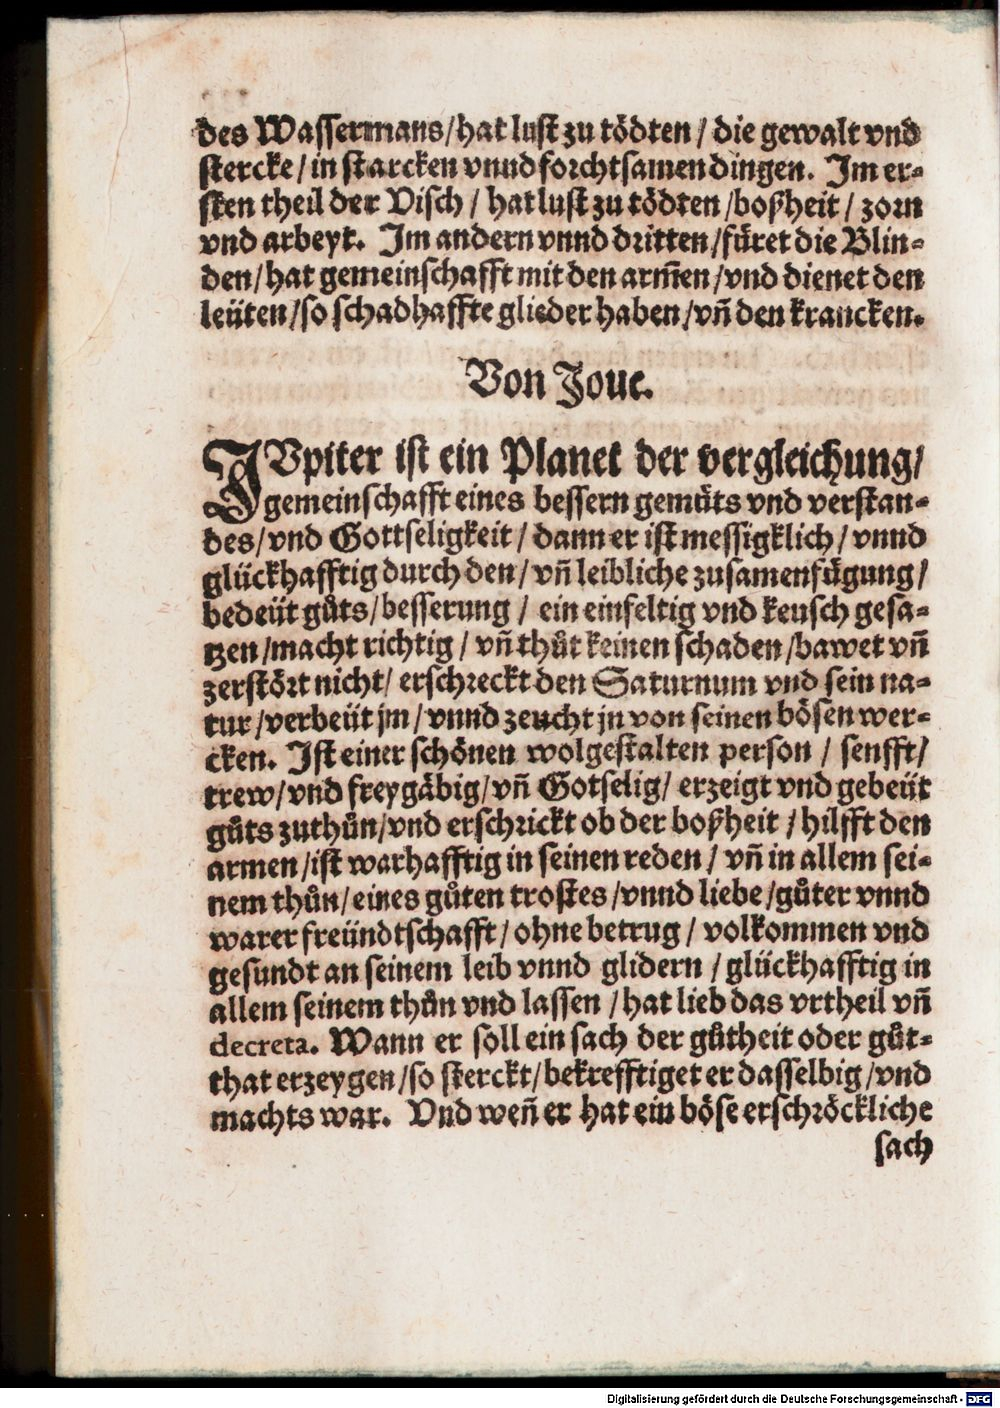 des Wassermans/hat lust zu tödten / die gewalt vnd
stercke / in starcken vnnd forchtsamen dingen. Im er-
sten theil der Visch / hat lust zu tödten /boßheit / zorn
vnd arbeyt. Im andern vnnd dritten/füret die Blin-
den/hat gemeinschafft mit den arm̃en/vnd dienet den
leüten/so schadhaffte glieder haben/vñ den krancken.
Von Joue.
JVpiter ist ein Planet der vergleichung/
gemeinschafft eines bessern gemüts vnd verstan-
des/vnd Gottseligkeit / dann er ist messigklich/ vnnd
glückhafftig durch den/ vñ leibliche zusamenfügung /
bedeüt gůts/besserung / ein einfeltig vnd keusch gesa-
tzen /macht richtig / vñ thůt keinen schaden /bawet vñ
zerstört nicht/ erschreckt den Saturnum vnd sein na-
tur /verbeüt jm/ vnnd zeucht jn von seinen bösen wer-
cken. Ist einer schönen wolgestalten person / senfft/
trew/vnd freygäbig/vñ Gotselig/ erzeigt vnd gebeüt
gůts zuthůn/vnd erschrickt ob der boßheit / hilfft den
armen /ist warhafftig in seinen reden / vñ in allem sei-
nem thůn/ eines gůten trostes /vnnd liebe /gůter vnnd
warer freündtschafft / ohne betrug / volkommen vnd
gesundt an seinem leib vnnd glidern / glückhafftig in
allem seinem thůn vnd lassen / hat lieb das vrtheil vñ
decreta. Wann er soll ein sach der gůtheit oder gůt-
that erzeygen /so sterckt/ bekrefftiget er dasselbig /vnd
machts war. Vnd weñ er hat ein böse erschröckliche
sach
Digitalisierung gefördert durch die Deutsche Forschungsgemeinschaft - DFG